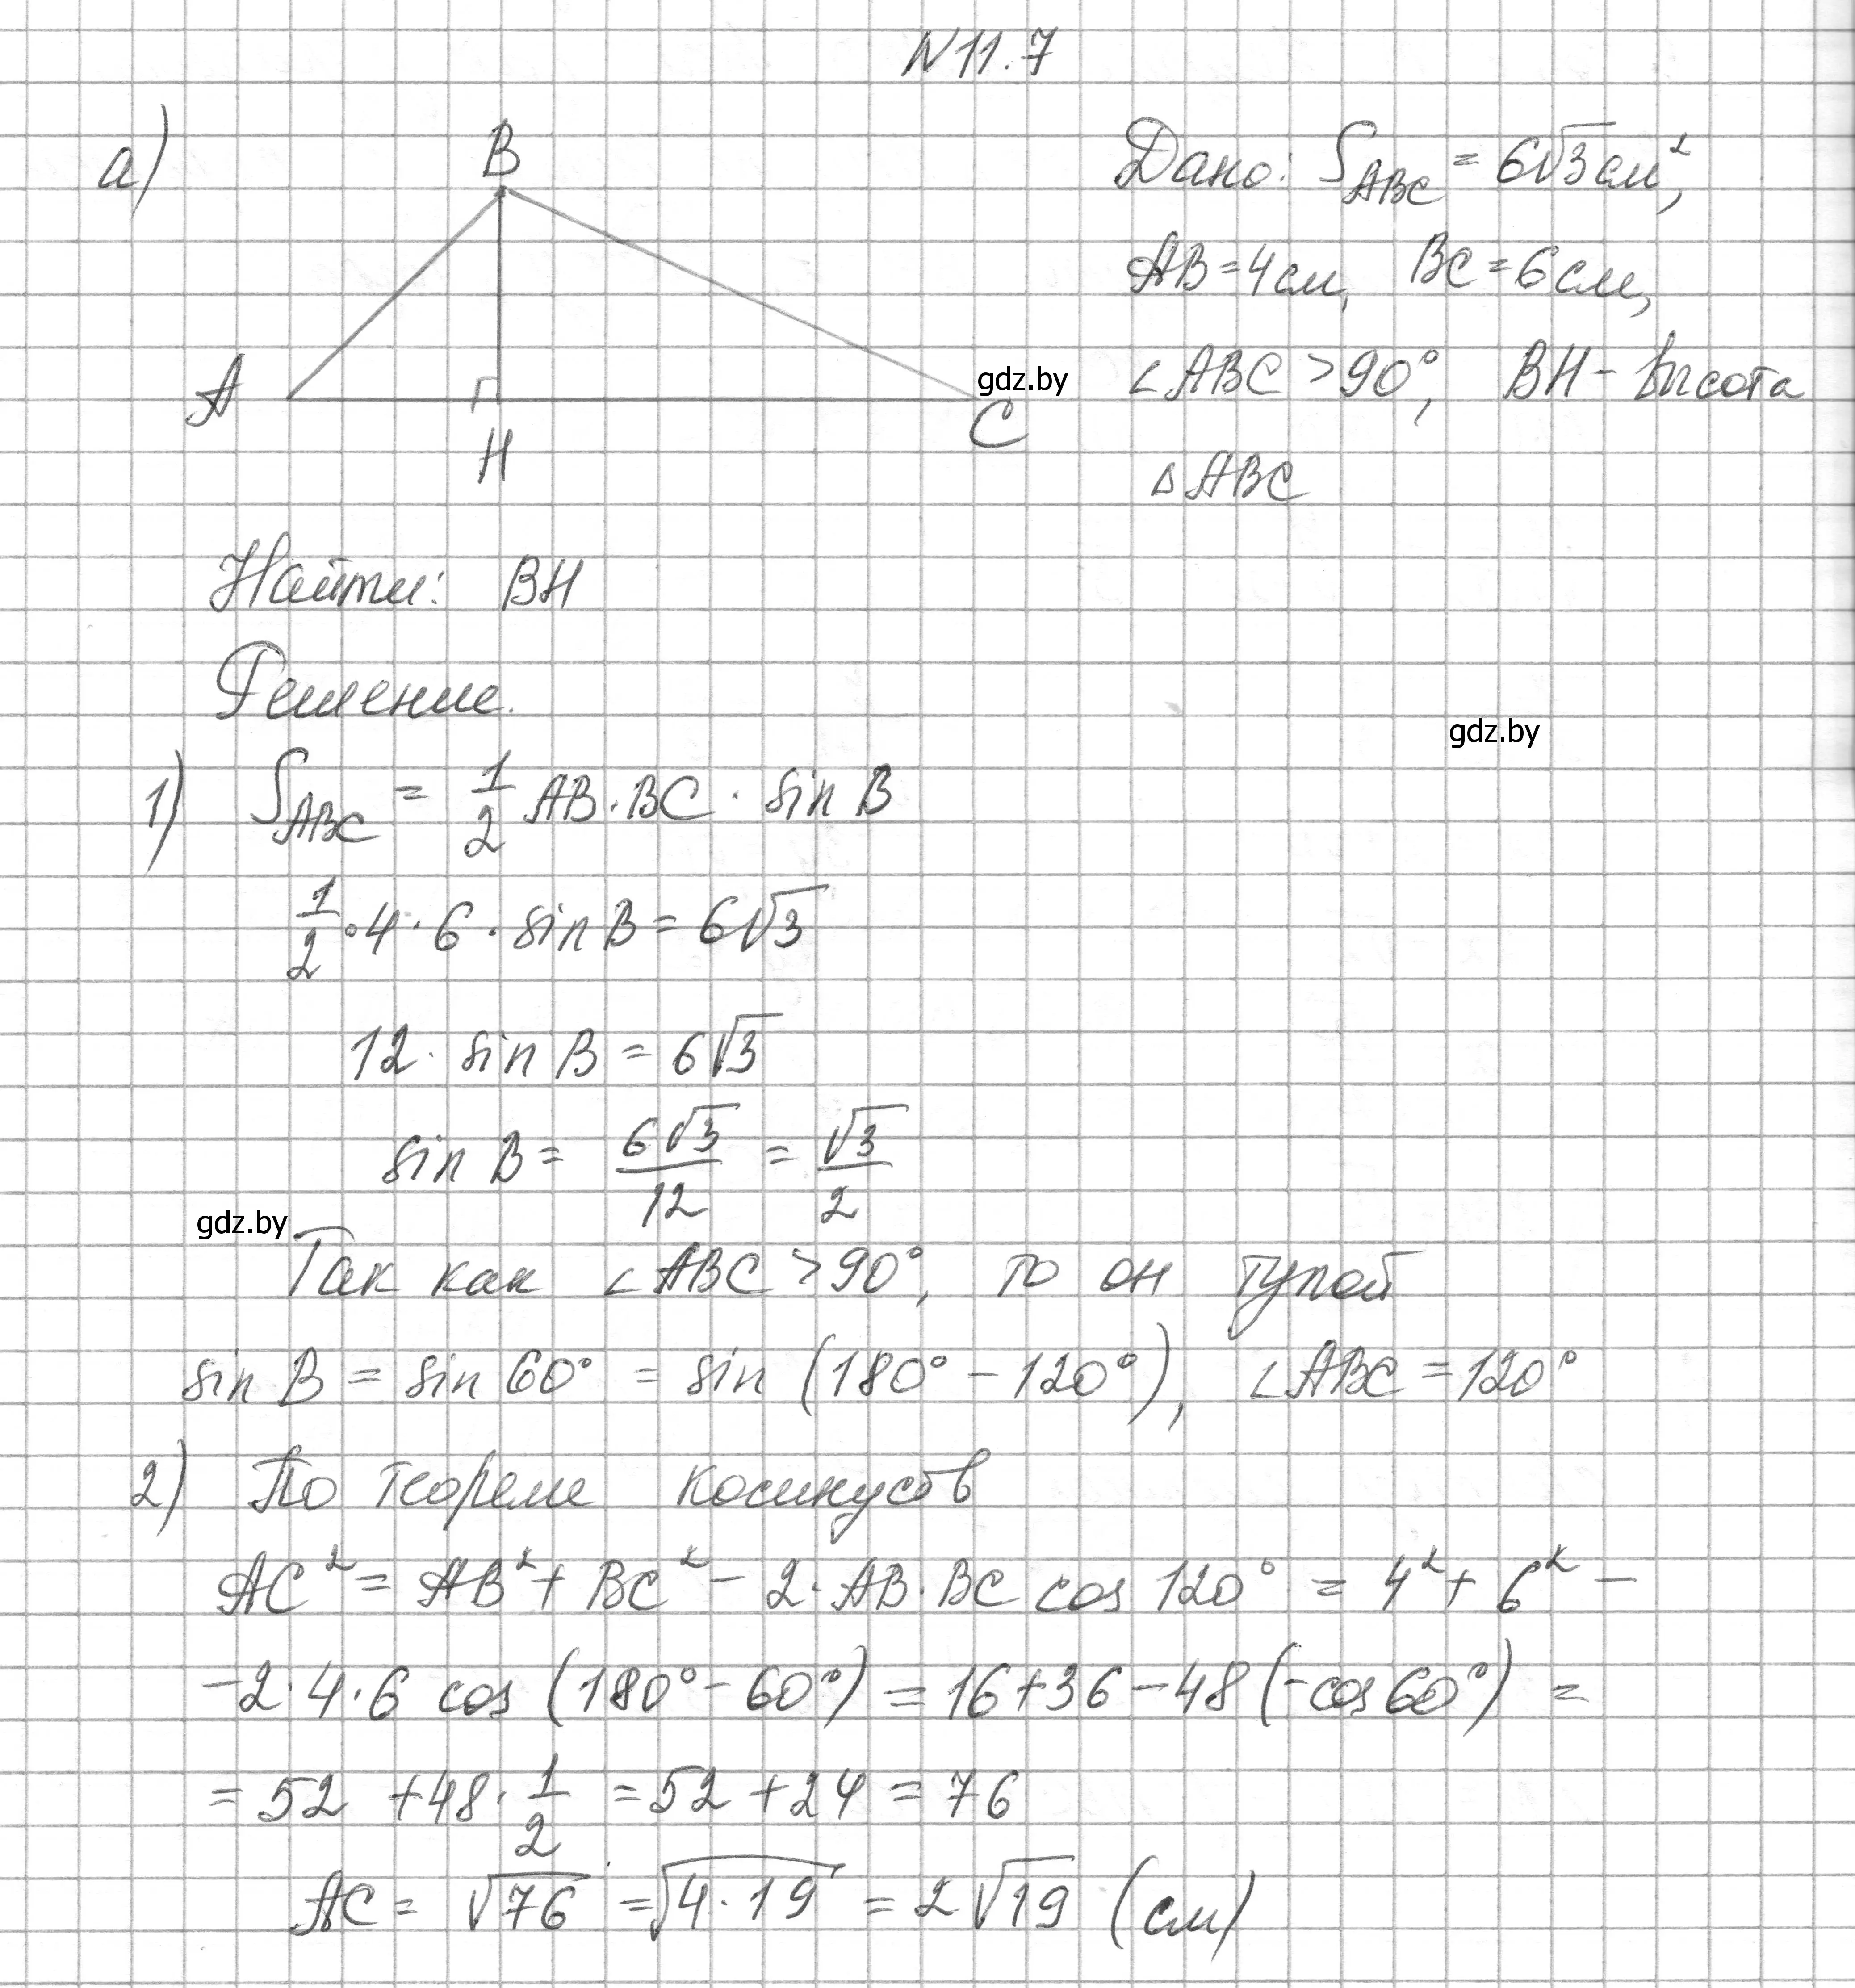 N 11.7
а)
B
A
H
C
gdz.by
Дано: S_ABC = 6√3 см²,
AB = 4 см, BC = 6 см,
∠ABC > 90°, BH – высота
△ABC
Найти: BH
Решение.
gdz.by
1) S_ABC = 1/2 AB · BC · sin B
1/2 · 4 · 6 · sin B = 6√3
12 · sin B = 6√3
sin B = 6√3/12 = √3/2
gdz.by
Так как ∠ABC > 90°, то он тупой
sin B = sin 60° = sin (180° – 120°), ∠ABC = 120°
2) По теореме косинусов
AC² = AB² + BC² – 2 · AB · BC cos 120° = 4² + 6² –
– 2 · 4 · 6 cos (180° – 60°) = 16 + 36 – 48 (– cos 60°) =
= 52 + 48 · 1/2 = 52 + 24 = 76
AC = √76 = √4 · 19 = 2√19 (см)